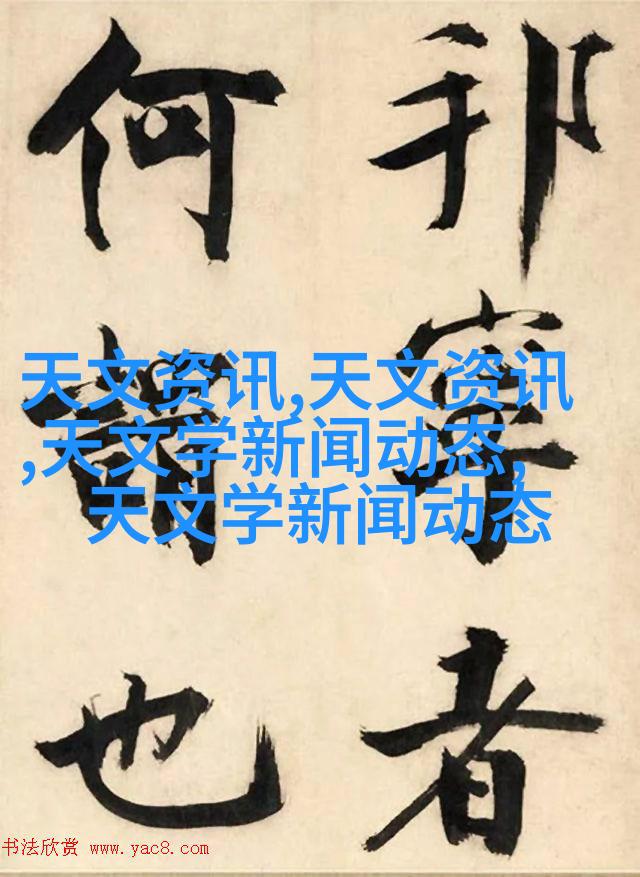 邦者
何也
天文资讯,天文资讯
,天文学新闻动态,
天文学新闻动态
书法欣赏 www.yac8.com